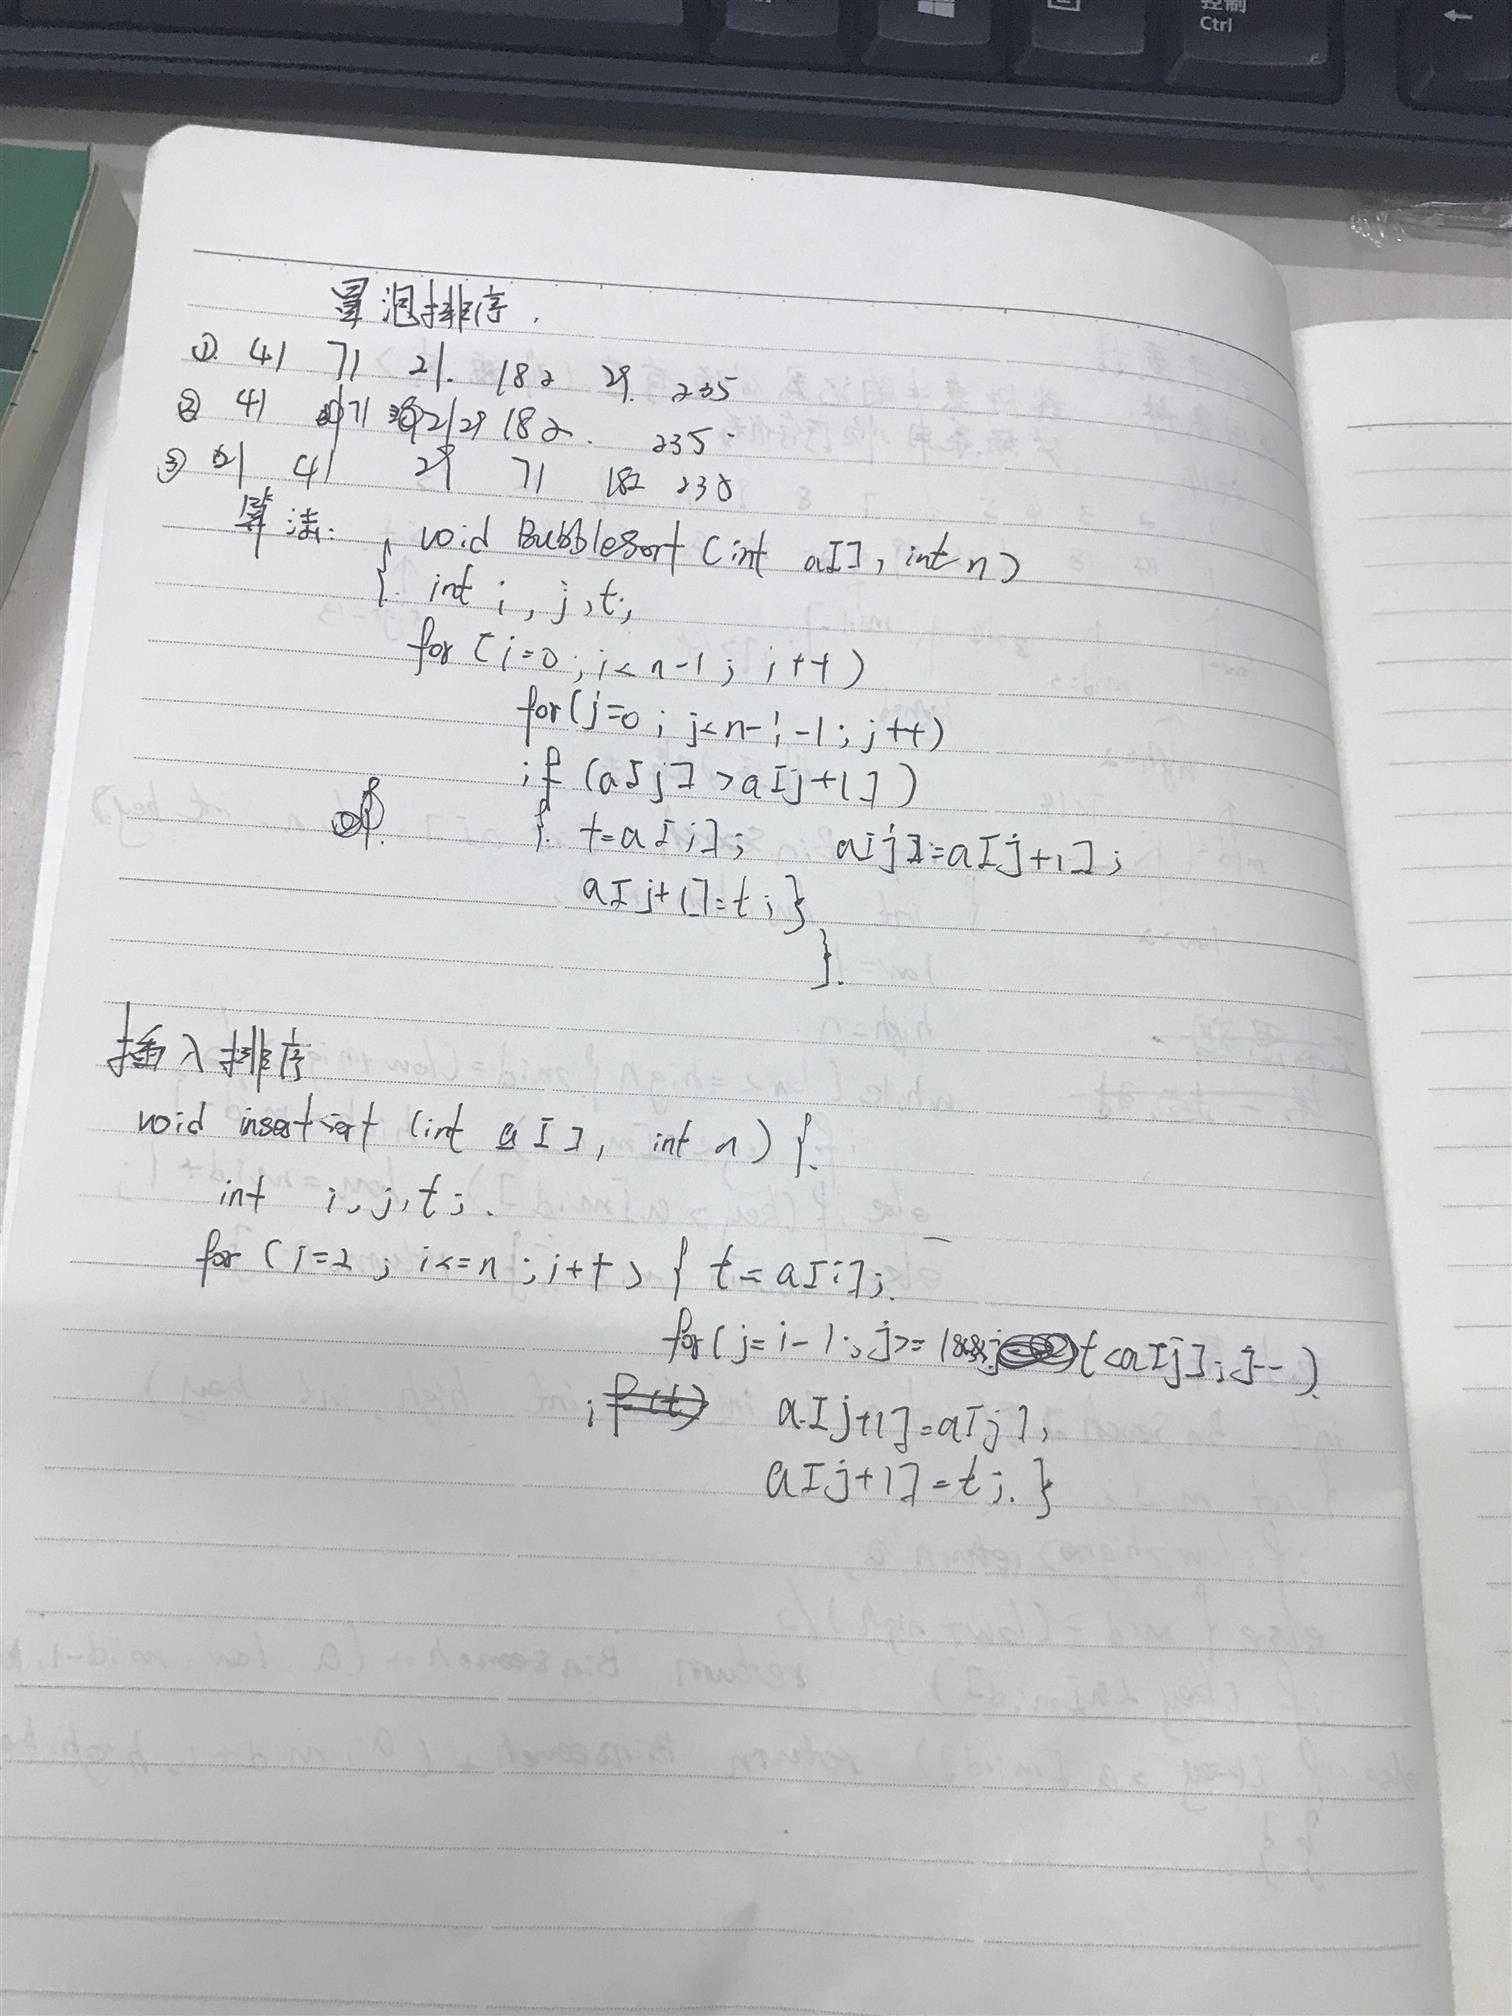 控制
Ctrl
冒泡排序.
① 41 71 21. 182 29. 235
② 41 71 21 29 182. 235.
③ 21 41 29 71 182 235
算法: void BubbleSort (int a[], int n)
{ int i, j, t;
for (i=0; i<n-1; i++)
for(j=0; j<n-i-1; j++)
if (a[j]>a[j+1])
{ t=a[j]; a[j]=a[j+1];
a[j+1]=t;}
}.
插入排序
void insertsort (int a[], int n) {
int i, j, t;
for (i=2; i<=n; i++) { t=a[i];
for(j=i-1; j>=1&&t<a[j]; j--)
a[j+1]=a[j],
a[j+1]=t;}